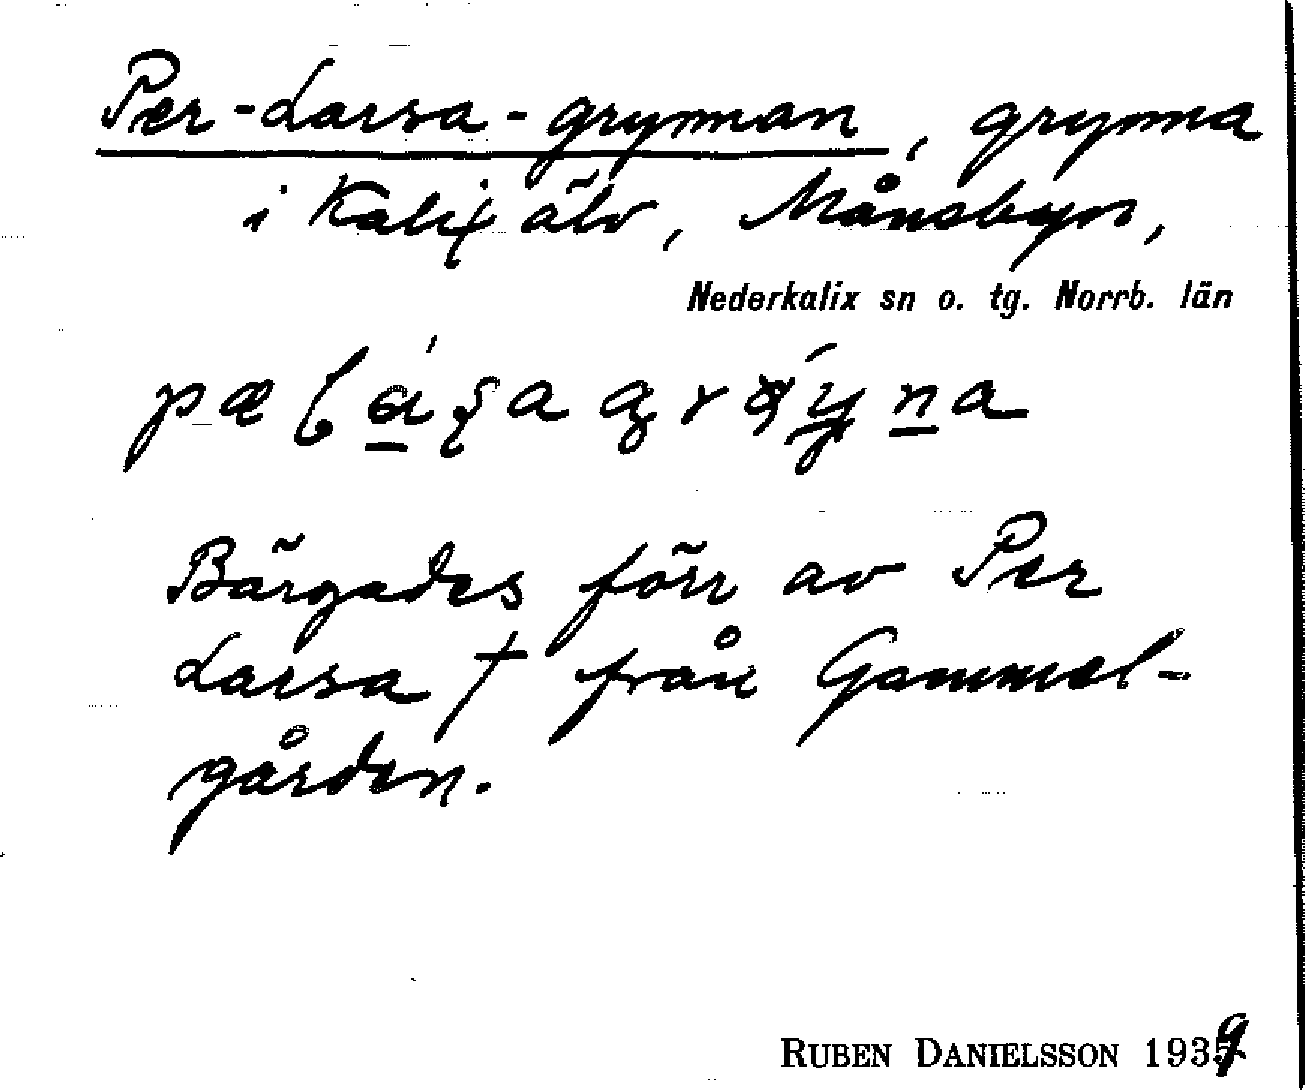 Per-Larsa-grynnan, grynna
i Kalix älv, Månsbyn,
Nederkalix sn o. tg. Norrb. län
Bärgades förr av Per
Larsa † från Gammel-
gården.
RUBEN DANIELSSON 1939